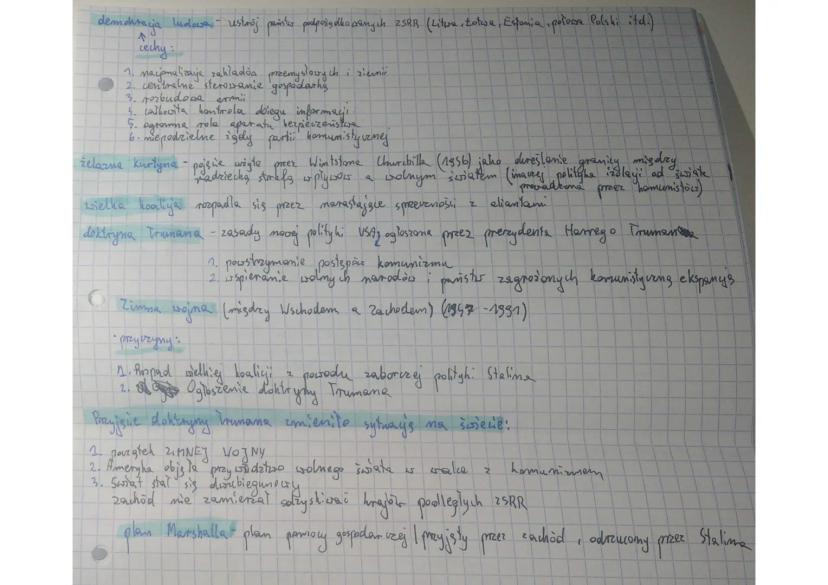 demokracja ludowa - ustrój państw podporządkowanych ZSRR (Litwa, Łotwa, Estonia, połowa Polski itd.)
cechy:
1. nacjonalizacja zakładów przemysłowych i ziemii
2. centralne sterowanie gospodarką
3. rozbudowa armii
4. całkowita kontrola obiegu informacji
5. ogromna rola aparatu bezpieczeństwa
6. niepodzielne rządy partii komunistycznej
żelazna kurtyna - pojęcie wzięte przez Wintstona Churchilla (1946) jako określenie granicy między
radziecką strefą wpływów a wolnym światem (inaczej polityka izolacji od świata
prowadzona przez komunistów)
wielka koalicja rozpadła się przez narastające sprzeczności z aliantami
doktryna Trumana - zasady nowej polityki USA, ogłoszone przez prezydenta Harrego Trumana
1. powstrzymanie postępów komunizmu
2. wspieranie wolnych narodów i państw zagrożonych komunistyczną ekspansją
Zimna wojna (między Wschodem a Zachodem) (1947 - 1991)
- przyczyny:
1. Rozpad wielkiej koalicji z powodu zaborczej polityki Stalina
2. Ogłoszenie doktryny Trumana
Przyjęcie doktryny Trumana zmieniło sytuację na świecie:
1. początek ZIMNEJ WOJNY
2. Ameryka objęła przywództwo wolnego świata w walce z komunizmem
3. Świat stał się dwubiegunowy
zachód nie zamierzał odzyskiwać krajów podległych ZSRR
plan Marshalla - plan pomocy gospodarczej | przyjęty przez zachód, odrzucony przez Stalina